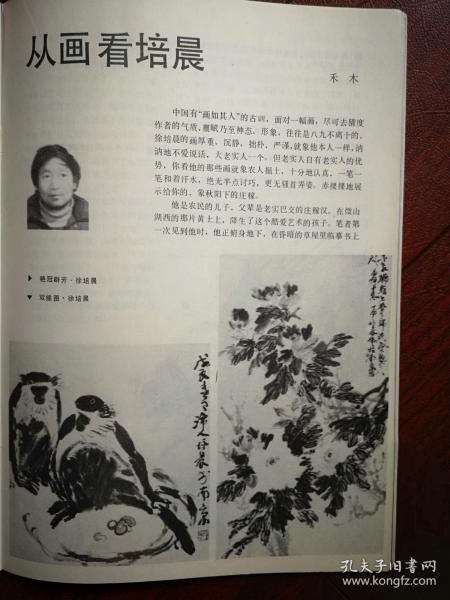 从画看培晨
禾木
中国有“画如其人”的古训，面对一幅画，尽可去猜度
作者的气质，禀赋乃至神态、形象，往往是八九不离十的。
徐培晨的画厚重、沉静、拙朴、严谨，就象他本人一样，讷
讷地不爱说话，大老实人一个。但老实人自有老实人的优
势，你看他的那些画就象农人掘土，十分地认真，一笔一
笔和着汗水，绝无半点讨巧，更无骚首弄姿。赤裸裸地展
示给你的，象秋阳下的庄稼。
他是农民的儿子，父辈是老实巴交的庄稼汉。在微山
湖西的那片黄土上，降生了这个酷爱艺术的孩子。笔者第
一次见到他时，他正俯身地下，在昏暗的草屋里临摹书上
▶ 艳冠群芳·徐培晨
▼ 双猿图·徐培晨
孔夫子旧书网
www.kongfz.com